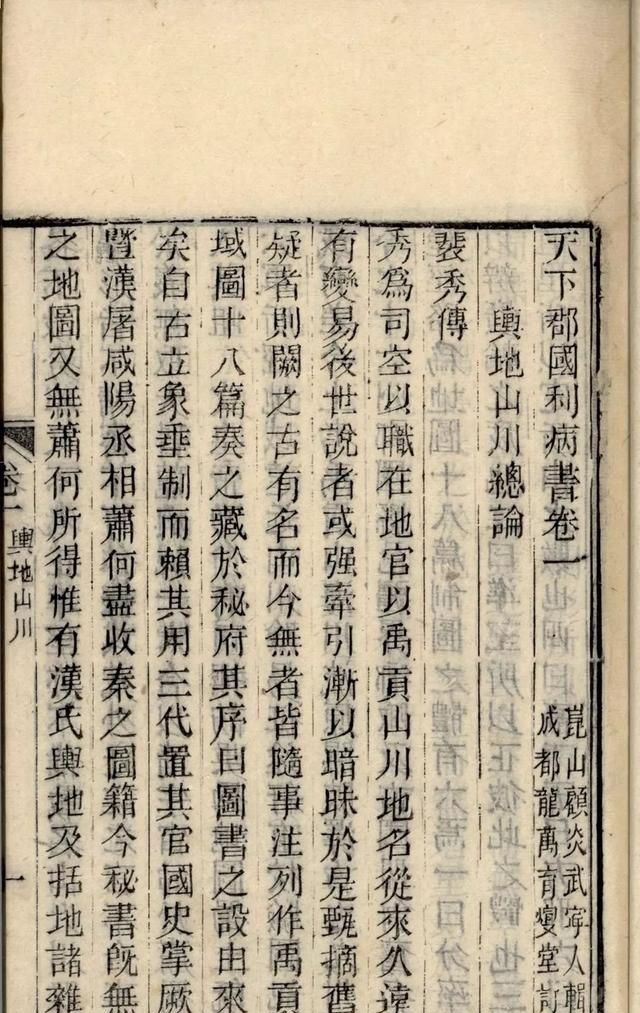 天下郡國利病書卷一
崑山顧炎武寜人輯
成都龍萬育燮堂訂
輿地山川總論
裴秀傳
秀爲司空以職在地官以禹貢山川地名從來久遠
有變易後世說者或强牽引漸以暗昧於是甄摘舊
疑者則闕之古有名而今無者皆隨事注列作禹貢
域圖十八篇奏之藏於秘府其序曰圖書之設由來
矣自古立象垂制而賴其用三代置其官國史掌厥
曁漢屠咸陽丞相蕭何盡收秦之圖籍今秘書旣無
之地圖又無蕭何所得惟有漢氏輿地及括地諸雜
卷一 輿地山川
一